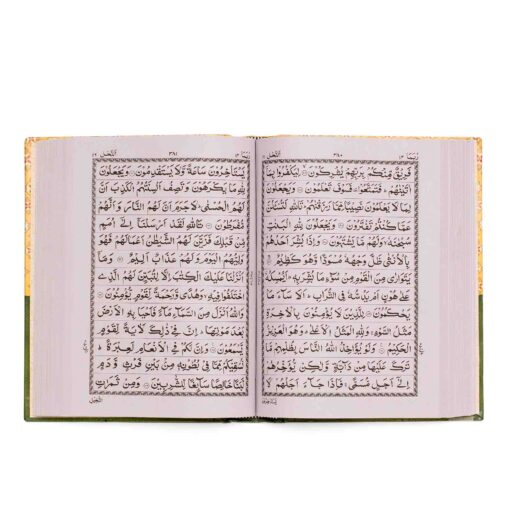 رُبَمَا ١٤ ٣٨٠ اَلنَّحْل ١٦
فَرِيْقٌ مِّنْكُمْ بِرَبِّهِمْ يُشْرِكُوْنَ ۝ لِيَكْفُرُوْا بِمَاۤ
اٰتَيْنٰهُمْ ؕ فَتَمَتَّعُوْا ۫ فَسَوْفَ تَعْلَمُوْنَ ۝ وَيَجْعَلُوْنَ
لِمَا لَا يَعْلَمُوْنَ نَصِيْبًا مِّمَّا رَزَقْنٰهُمْ ؕ تَاللّٰهِ لَتُسْـَٔلُنَّ
عَمَّا كُنْتُمْ تَفْتَرُوْنَ ۝ وَيَجْعَلُوْنَ لِلّٰهِ الْبَنٰتِ
سُبْحٰنَهٗ ۙ وَلَهُمْ مَّا يَشْتَهُوْنَ ۝ وَاِذَا بُشِّرَ اَحَدُهُمْ
بِالْاُنْثٰى ظَلَّ وَجْهُهٗ مُسْوَدًّا وَّهُوَ كَظِيْمٌ ۝
يَتَوَارٰى مِنَ الْقَوْمِ مِنْ سُوْٓءِ مَا بُشِّرَ بِهٖ ؕ اَيُمْسِكُهٗ
عَلٰى هُوْنٍ اَمْ يَدُسُّهٗ فِي التُّرَابِ ؕ اَلَا سَآءَ مَا
يَحْكُمُوْنَ ۝ لِلَّذِيْنَ لَا يُؤْمِنُوْنَ بِالْاٰخِرَةِ
مَثَلُ السَّوْءِ ۚ وَلِلّٰهِ الْمَثَلُ الْاَعْلٰى ؕ وَهُوَ الْعَزِيْزُ
الْحَكِيْمُ ۝ وَلَوْ يُؤَاخِذُ اللّٰهُ النَّاسَ بِظُلْمِهِمْ مَّا
تَرَكَ عَلَيْهَا مِنْ دَآبَّةٍ وَّلٰكِنْ يُّؤَخِّرُهُمْ
اِلٰۤى اَجَلٍ مُّسَمًّى ۚ فَاِذَا جَآءَ اَجَلُهُمْ لَا
يَسْتَاْخِرُوْنَ
رُبَمَا ١٤ ٣٨١ اَلنَّحْل ١٦
يَسْتَاْخِرُوْنَ سَاعَةً وَّلَا يَسْتَقْدِمُوْنَ ۝ وَيَجْعَلُوْنَ
لِلّٰهِ مَا يَكْرَهُوْنَ وَتَصِفُ اَلْسِنَتُهُمُ الْكَذِبَ اَنَّ
لَهُمُ الْحُسْنٰى ؕ لَا جَرَمَ اَنَّ لَهُمُ النَّارَ وَاَنَّهُمْ
مُّفْرَطُوْنَ ۝ تَاللّٰهِ لَقَدْ اَرْسَلْنَاۤ اِلٰۤى اُمَمٍ
مِّنْ قَبْلِكَ فَزَيَّنَ لَهُمُ الشَّيْطٰنُ اَعْمَالَهُمْ فَهُوَ
وَلِيُّهُمُ الْيَوْمَ وَلَهُمْ عَذَابٌ اَلِيْمٌ ۝ وَمَاۤ
اَنْزَلْنَا عَلَيْكَ الْكِتٰبَ اِلَّا لِتُبَيِّنَ لَهُمُ الَّذِي
اخْتَلَفُوْا فِيْهِ ۙ وَهُدًى وَّرَحْمَةً لِّقَوْمٍ يُّؤْمِنُوْنَ ۝
وَاللّٰهُ اَنْزَلَ مِنَ السَّمَآءِ مَآءً فَاَحْيَا بِهِ الْاَرْضَ
بَعْدَ مَوْتِهَا ؕ اِنَّ فِيْ ذٰلِكَ لَاٰيَةً لِّقَوْمٍ
يَّسْمَعُوْنَ ۝ وَاِنَّ لَكُمْ فِي الْاَنْعَامِ لَعِبْرَةً ؕ
نُسْقِيْكُمْ مِّمَّا فِيْ بُطُوْنِهٖ مِنْۢ بَيْنِ فَرْثٍ وَّدَمٍ
لَّبَنًا خَالِصًا سَآئِغًا لِّلشّٰرِبِيْنَ ۝ وَمِنْ ثَمَرٰتِ
النَّخِيْلِ